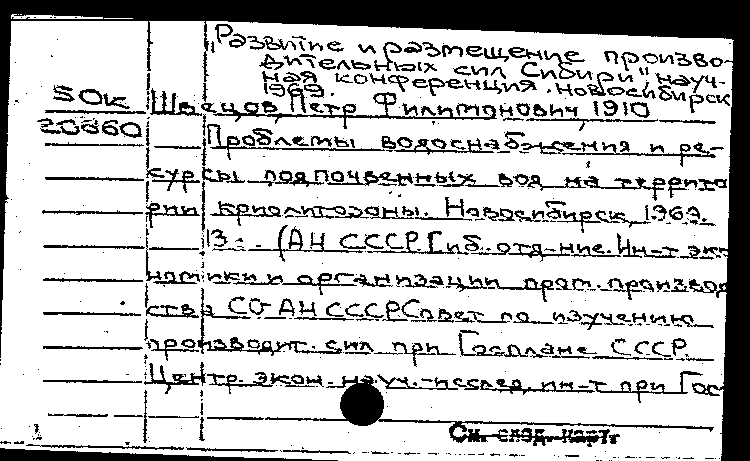 „Развитие и размещение произво-
дительных сил Сибири", науч-
ная конференция. Новосибирск
1969.
SOк Швецов, Петр Филимонович, 1910
20660
Проблемы водоснабжения и ре-
сурсы подпочвенных вод на террито
рии криолитозоны. Новосибирск, 1969.
13 с. (АН СССР. Сиб. отд-ние. Ин-т эко
номики и организации пром. производ
ства СО АН СССР. Совет по изучению
производит. сил при Госплане СССР
Центр. экон. науч.-исслед. ин-т при Гос
1 См. след. карт.